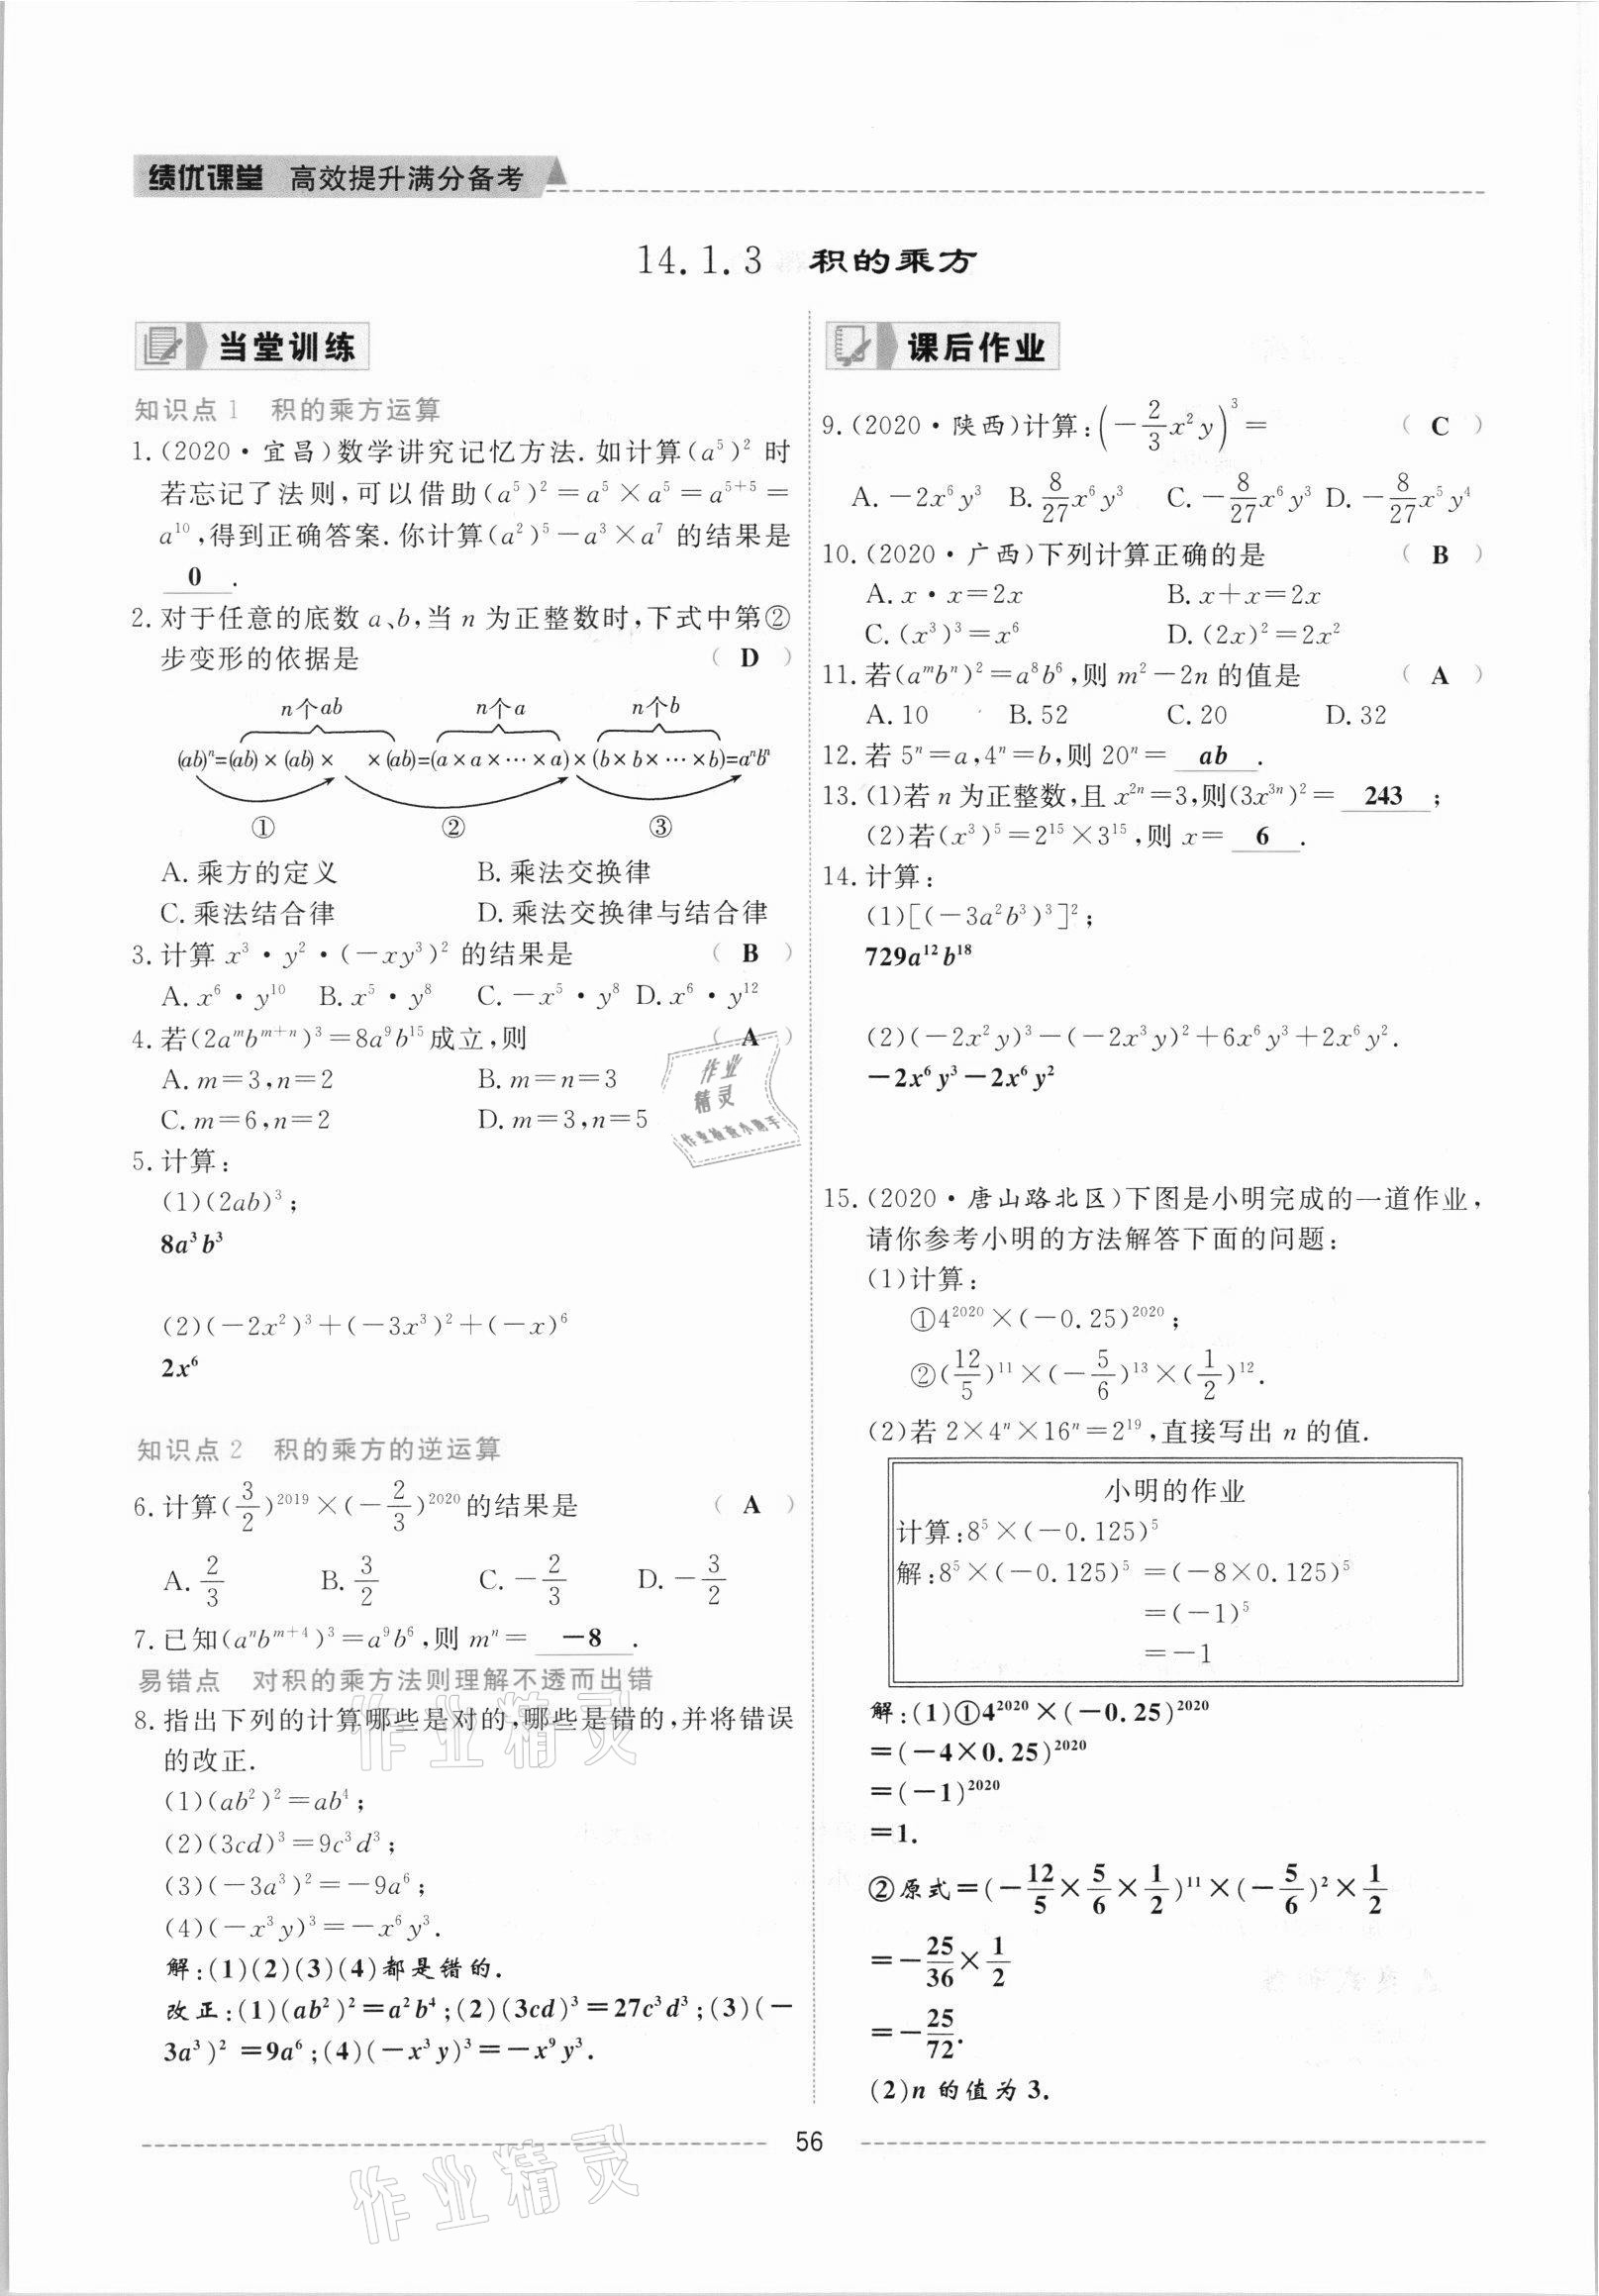 绩优课堂 高效提升满分备考
14.1.3 积的乘方
当堂训练
知识点1 积的乘方运算
1.(2020·宜昌)数学讲究记忆方法.如计算(a⁵)²时
若忘记了法则,可以借助(a⁵)²=a⁵×a⁵=a⁵⁺⁵=
a¹⁰,得到正确答案.你计算(a²)⁵-a³×a⁷的结果是
0.
2.对于任意的底数a、b,当n为正整数时,下式中第②
步变形的依据是 ( D )
n个ab n个a n个b
(ab)ⁿ=(ab)×(ab)× ×(ab)=(a×a×⋯×a)×(b×b×⋯×b)=aⁿbⁿ
① ② ③
A.乘方的定义 B.乘法交换律
C.乘法结合律 D.乘法交换律与结合律
3.计算x³·y²·(-xy³)²的结果是 ( B )
A.x⁶·y¹⁰ B.x⁵·y⁸ C.-x⁵·y⁸ D.x⁶·y¹²
4.若(2aᵐbᵐ⁺ⁿ)³=8a⁹b¹⁵成立,则 ( A )
A.m=3,n=2 B.m=n=3
C.m=6,n=2 D.m=3,n=5
5.计算:
(1)(2ab)³;
8a³b³
(2)(-2x²)³+(-3x³)²+(-x)⁶
2x⁶
知识点2 积的乘方的逆运算
6.计算(3/2)²⁰¹⁹×(-2/3)²⁰²⁰的结果是 ( A )
A.2/3 B.3/2 C.-2/3 D.-3/2
7.已知(aⁿbᵐ⁺⁴)³=a⁹b⁶,则mⁿ=-8.
易错点 对积的乘方法则理解不透而出错
8.指出下列的计算哪些是对的,哪些是错的,并将错误
的改正.
(1)(ab²)²=ab⁴;
(2)(3cd)³=9c³d³;
(3)(-3a³)²=-9a⁶;
(4)(-x³y)³=-x⁶y³.
解:(1)(2)(3)(4)都是错的.
改正:(1)(ab²)²=a²b⁴;(2)(3cd)³=27c³d³;(3)(-
3a³)²=9a⁶;(4)(-x³y)³=-x⁹y³.
课后作业
9.(2020·陕西)计算:(-2/3x²y)³= ( C )
A.-2x⁶y³ B.8/27x⁶y³ C.-8/27x⁶y³ D.-8/27x⁵y⁴
10.(2020·广西)下列计算正确的是 ( B )
A.x·x=2x B.x+x=2x
C.(x³)³=x⁶ D.(2x)²=2x²
11.若(aᵐbⁿ)²=a⁸b⁶,则m²-2n的值是 ( A )
A.10 B.52 C.20 D.32
12.若5ⁿ=a,4ⁿ=b,则20ⁿ=ab.
13.(1)若n为正整数,且x²ⁿ=3,则(3x³ⁿ)²=243;
(2)若(x³)⁵=2¹⁵×3¹⁵,则x=6.
14.计算:
(1)[(-3a²b³)³]²;
729a¹²b¹⁸
(2)(-2x²y)³-(-2x³y)²+6x⁶y³+2x⁶y².
-2x⁶y³-2x⁶y²
15.(2020·唐山路北区)下图是小明完成的一道作业,
请你参考小明的方法解答下面的问题:
(1)计算:
①4²⁰²⁰×(-0.25)²⁰²⁰;
②(12/5)¹¹×(-5/6)¹³×(1/2)¹².
(2)若2×4ⁿ×16ⁿ=2¹⁹,直接写出n的值.
小明的作业
计算:8⁵×(-0.125)⁵
解:8⁵×(-0.125)⁵=(-8×0.125)⁵
=(-1)⁵
=-1
解:(1)①4²⁰²⁰×(-0.25)²⁰²⁰
=(-4×0.25)²⁰²⁰
=(-1)²⁰²⁰
=1.
②原式=(-12/5×5/6×1/2)¹¹×(-5/6)²×1/2
=-25/36×1/2
=-25/72.
(2)n的值为3.
56
作业
精灵
作业检查小助手
作业精灵
作业精灵